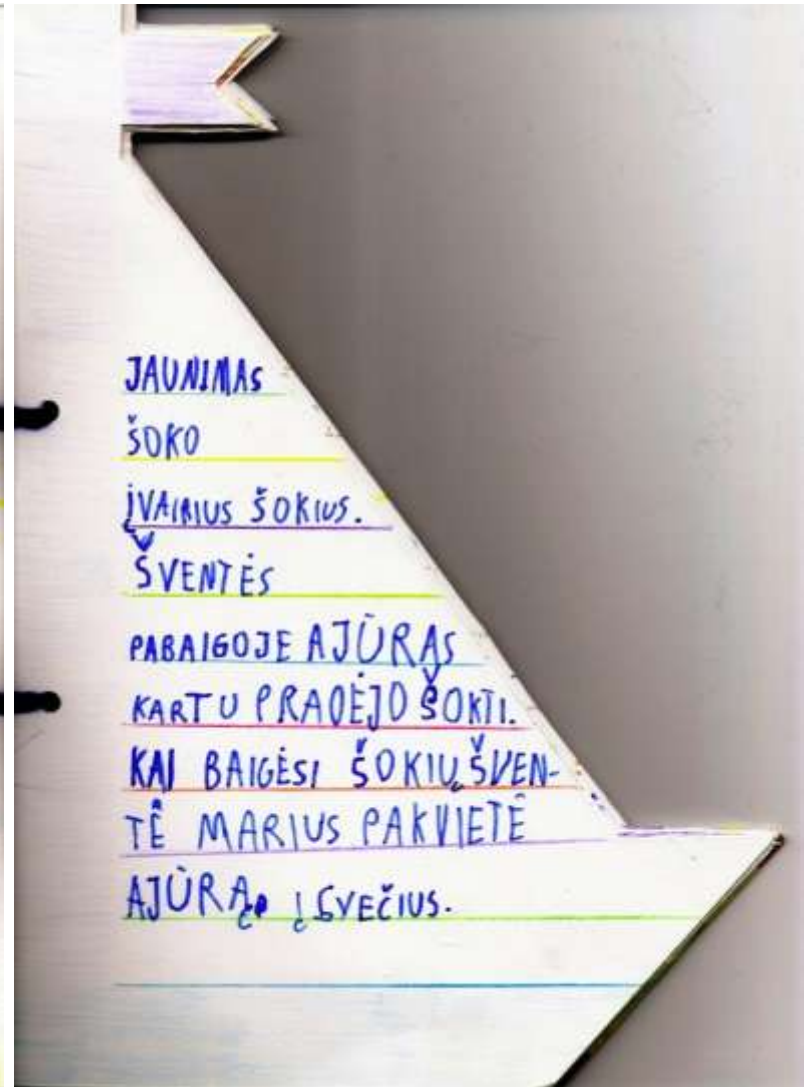 JAUNIMAS
ŠOKO
ĮVAIRIUS ŠOKIUS.
ŠVENTĖS
PABAIGOJE AJŪRAS
KARTU PRADĖJO ŠOKTI.
KAI BAIGĖSI ŠOKIŲ ŠVEN-
TĖ MARIUS PAKVIETĖ
AJŪRĄ Į SVEČIUS.